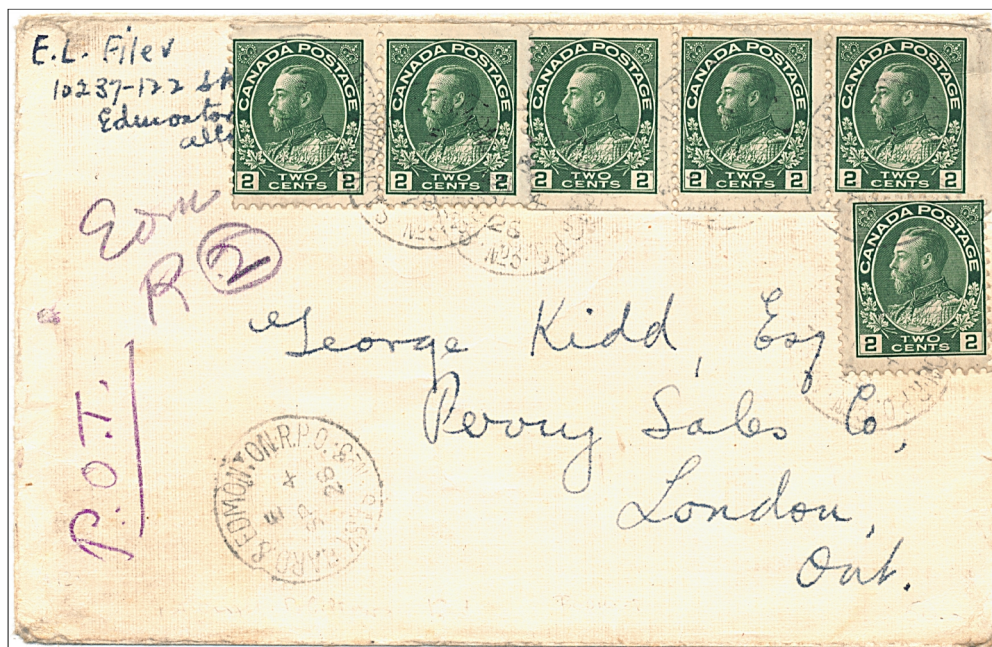 E.L. Filer
10237-122 St
Edmonton
alta
CANADA POSTAGE
2 TWO CENTS 2
CANADA POSTAGE
2 TWO CENTS 2
CANADA POSTAGE
2 TWO CENTS 2
CANADA POSTAGE
2 TWO CENTS 2
CANADA POSTAGE
2 TWO CENTS 2
CANADA POSTAGE
2 TWO CENTS 2
Edm
R 2
P.O.T.
George Kidd, Esq
Perry Sales Co,
London,
Ont.
& EDMONTON. R.P.O.
4
26